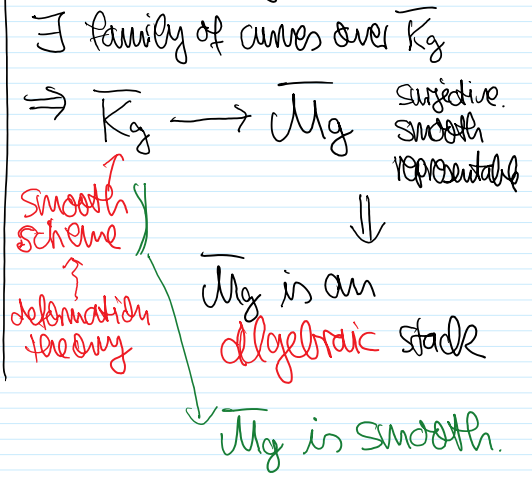 ∃ family of curves over K̅g
⇒ K̅g → ℳ̅g surjective.
smooth
representable
smooth
scheme
⇓
ℳ̅g is an
deformation
theory
algebraic stack
ℳ̅g is smooth.